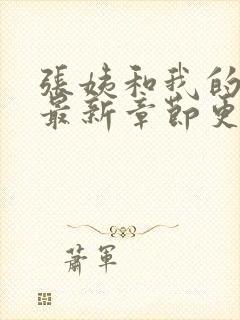 張姨和我的
最新章節更
蕭軍